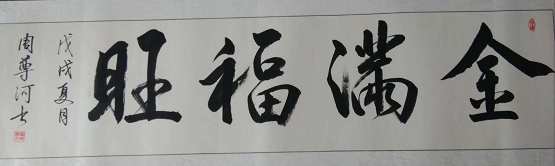 金满福旺
戊戌夏月
周尊河书